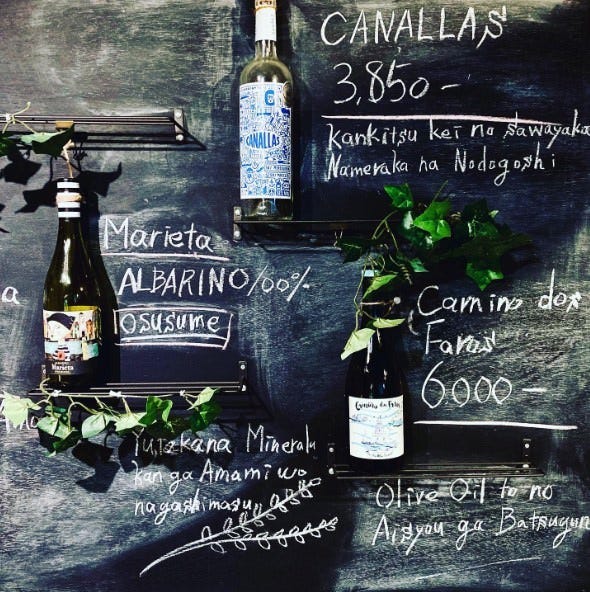 CANALLAS
3,850-
Kankitsu kei no sawayaka
Nameraka na Nodogoshi
CANALLAS
Marieta
ALBARINO 100%
osusume
Marieta
Camino dos
Faros
6000-
Yutakana Mineralu
kan ga Amami wo
nagashimasu
Olive Oil to no
Aisyou ga Batsugun
a